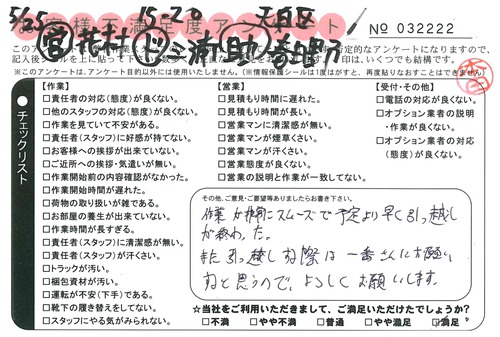 5/25 15-20 天白区
お客様不満足度アンケート No 032222
営 花村 ド 三浦 助 香野
このアン
定的なアンケートになりますので、
記入後
印は、いくつでも結構です。
※このアンケートは、アンケート目的以外には使用いたしません。(※情報保護シールは1度はがすと、再度貼りなおすことはできません)
チェックリスト
【作業】
□責任者の対応(態度)が良くない。
□他のスタッフの対応(態度)が良くない。
□作業を見ていて不安がある。
□責任者(スタッフ)に好感が持てない。
□お客様への挨拶が出来ていない。
□ご近所への挨拶・気遣いが無い。
□作業開始前の内容確認がなかった。
□作業開始時間が遅れた。
□荷物の取り扱いが雑である。
□お部屋の養生が出来ていない。
□作業時間が長すぎる。
□責任者(スタッフ)に清潔感が無い。
□責任者(スタッフ)が汗くさい。
□トラックが汚い。
□梱包資材が汚い。
□運転が不安(下手)である。
□靴下の履き替えをしてない。
□スタッフにやる気がみられない。
【営業】
□見積もり時間に遅れた。
□見積もり時間が長い。
□営業マンに清潔感が無い。
□営業マンが煙草くさい。
□営業マンが汗くさい。
□営業態度が良くない。
□営業の説明と作業が一致してない。
【受付・その他】
□電話の対応が良くない。
□オプション業者の説明
・作業が良くない。
□オプション業者の対応
(態度)が良くない。
その他、ご意見・ご要望等ありましたらお書き下さい。
作業が非常にスムーズで予定より早く引っ越し
が終わった。
また引っ越しする際は一番さんにお願い
すると思うので、よろしくお願いします。
☆当社をご利用いただきまして、ご満足いただけたでしょうか?
□不満 □やや不満 □普通 □やや満足 □満足